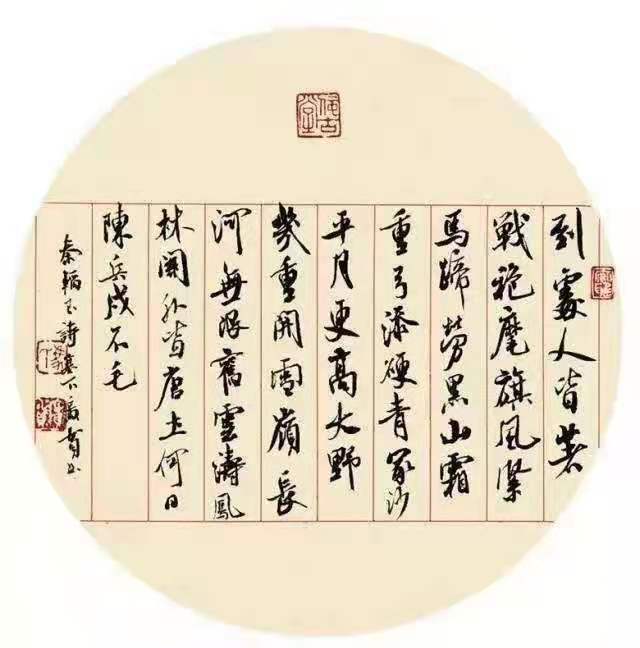 到處人皆著
戰袍麾旗風緊
馬蹄勞黑山霜
重弓添硬青冢沙
平月更高大野
幾重開雪嶺長
河無限舊雲濤鳳
林關外皆唐土何日
陳兵戍不毛
秦韜玉詩塞下